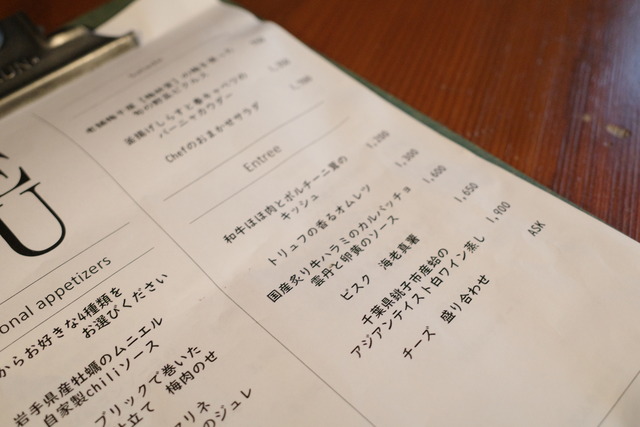 旬の野菜ピクルス
釜揚げしらすと春キャベツの
バーニャカウダー
Chefのおまかせサラダ
Entree
和牛ほほ肉とポルチーニ茸の
キッシュ
1,200
トリュフの香るオムレツ
1,300
国産炙り牛ハラミのカルパッチョ
雲丹と卵黄のソース
1,600
ビスク 海老真薯
1,650
千葉県銚子市産蛤の
アジアンテイスト白ワイン蒸し
1,900
チーズ 盛り合わせ
ASK
U
onal appetizers
からお好きな4種類を
お選びください
岩手県産牡蠣のムニエル
自家製chiliソース
ブリックで巻いた
仕立て 梅肉のせ
マリネ
のジュレ